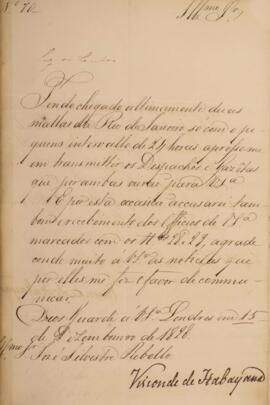 Nº 72
Illmo Sr.
Tendo chegado ultimamente duas
mallas do Rio de Janeiro só com o pe-
queno intervallo de 24 horas apresso-me
em transmittir os Despachos e Gazetas
que por ambas vierão para V.Sª
E por esta occasião accusarei tam-
bem o recebimento dos Officios de V.Sª
marcados com os Nos 28, 29, agrade-
cendo muito a V.Sª as noticias que
por elles me fez o favor de commu-
nicar.
Deos Guarde a V.Sª Londres em 15
de Dezembro de 1828.
Illmo Sr. José Silvestre Rebello
Visconde de Itabayana